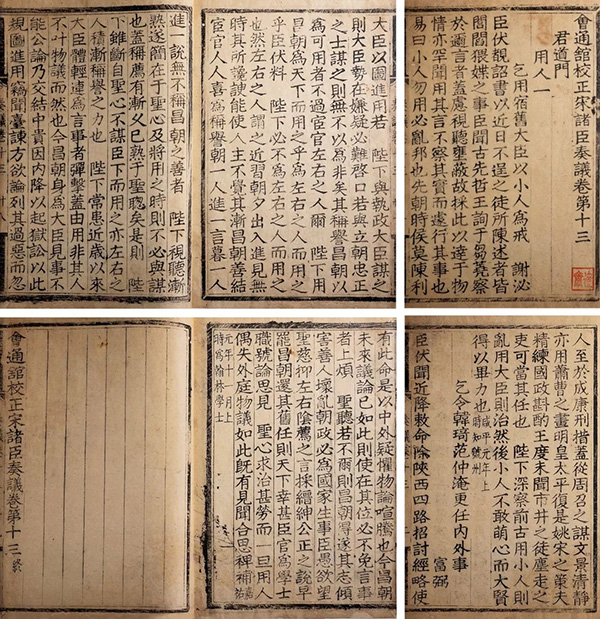 會通館校正宋諸臣奏議卷第十三
君道門
用人一
乞用宿舊大臣以小人為戒　謝泌
臣伏覩詔書以近日不逞之徒所陳述者皆
閭閻猥媟之事臣聞古先哲王詢于芻蕘察
於邇言者蓋慮視聽壅蔽故採此以達于物
情亦罕聞用其言不察其實而遽行其事也
易曰小人勿用必亂邦也先朝侯莫陳利
大臣以圖進用若　陛下與執政大臣謀之
則大臣勢在嫌疑必難啓口若與立朝忠正
之士謀之則無不以為非矣其稱譽昌朝以
為可用者不過宦官左右之人爾　陛下用
昌朝為天下而用之乎為左右之人而用之
乎臣伏料　陛下必不為左右之人而用之
也然左右之人謂之近習朝夕出入進見無
時其所讒諛能使人主不覺其漸昌朝善結
宦官人人喜為稱譽朝一人進一言暮一人
進一說無不稱昌朝之善者　陛下視聽漸
熟遂簡在于聖心及將用之時則不必與謀
也蓋稱薦有漸久已熟于聖聰矣是則　陛
下雖斷自聖心不謀臣下而用之亦左右之
人積漸稱譽之力也　陛下常患近歲以來
大臣體輕連為言事者彈擊蓋由用非其人
不叶物議而然也今昌朝身為大臣見事不
能公論乃交結中貴因內降以起獄訟以此
規圖進用竊聞臺諫方欲論列其過惡而忽
人至於成康刑措蓋從周召之謀文景清靜
亦用蕭曹之畫明皇太平復是姚宋之策夫
精練國政斟酌王度未聞市井之徒塵走之
吏可當其任也　陛下深察前古用小人則
亂用大臣則治然後小人不敢萌心而大賢
得以畢力也　咸平元年上時知虢州
乞令韓琦范仲淹更任內外事　富弼
臣伏聞近降敕命除陝西四路招討經略使
有此命是以中外疑懼物論喧騰也今昌朝
未來議論已如此則使在其位必不免言事
者上煩　聖聽若不爾則昌朝得遂其志傾
害善人壞亂朝政必為國家生事臣愚欲望
聖慈抑左右陰薦之言採縉紳公正之說早
罷昌朝還其舊任則天下幸甚臣官為學士
職號論思見　聖心求治甚勞而一旦用人
偶失外庭物議如此既有見聞合思裨補嘉祐
元年十一月上時為翰林學士
會通館校正宋諸臣奏議卷第十三　終